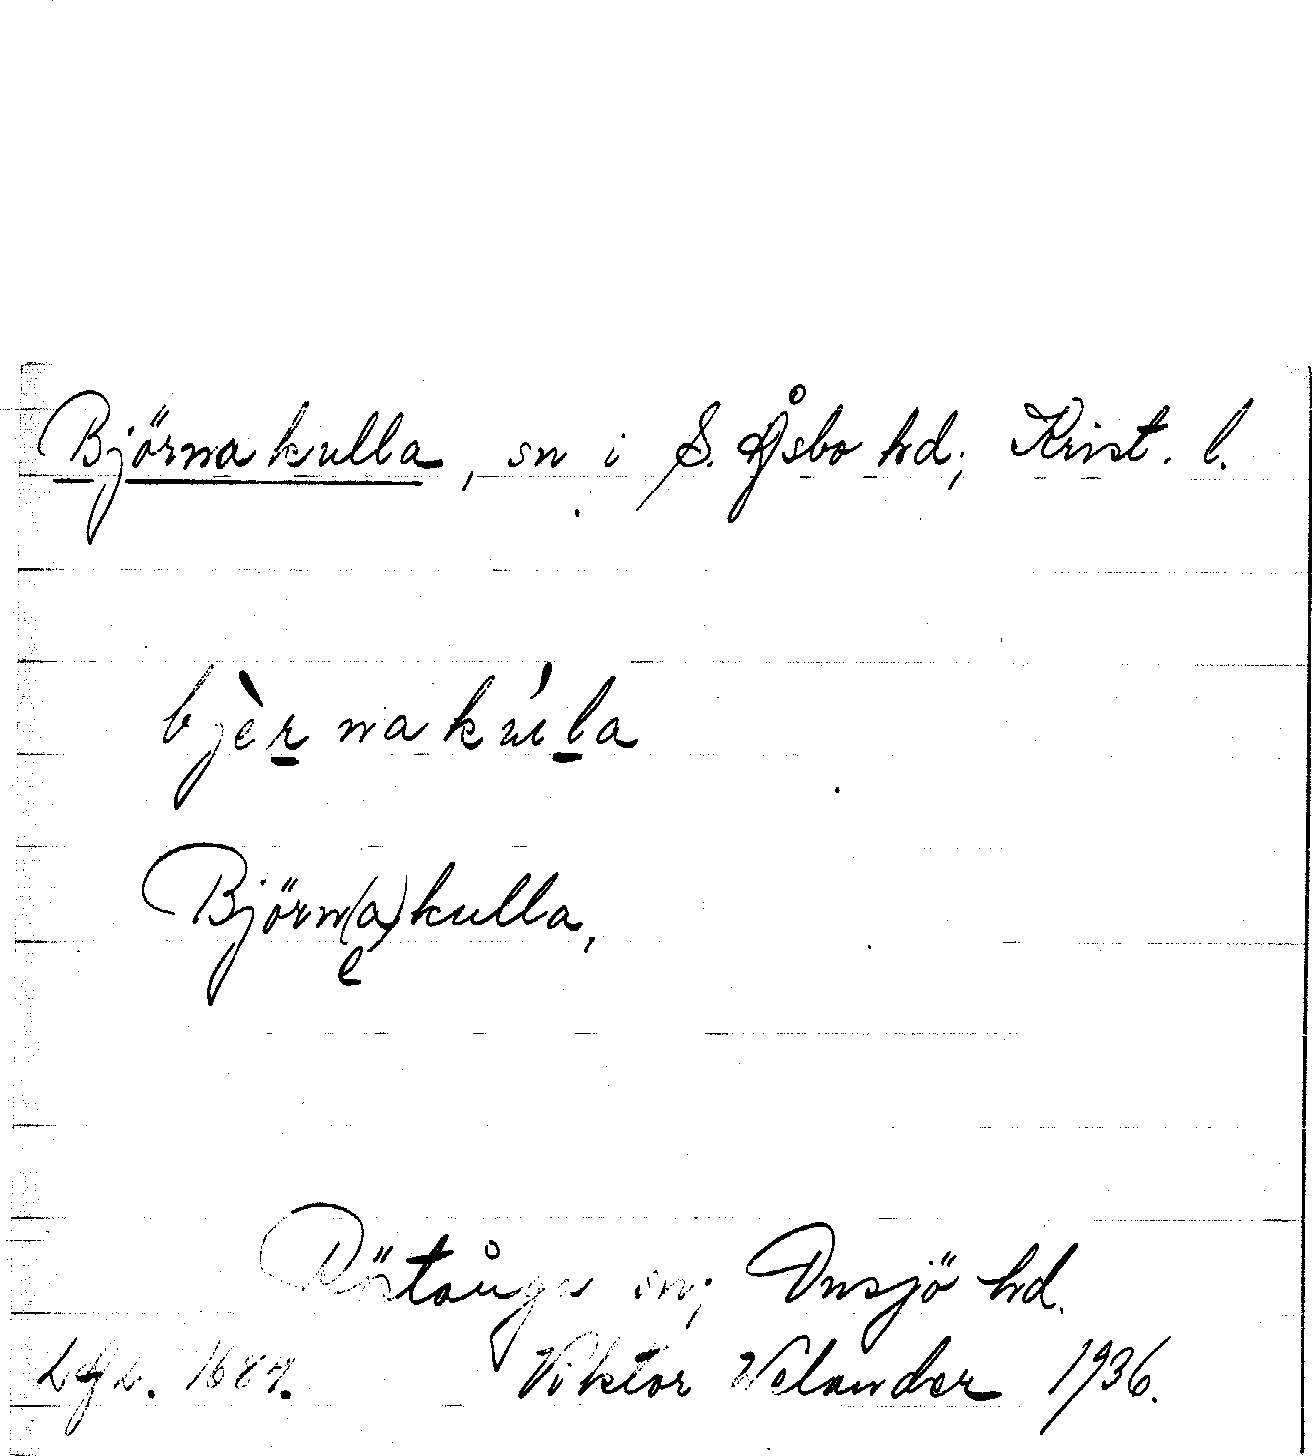 Björnakulla, sn i S. Åsbo hd; Krist. l.
bjè̱rnakúḻa
Björn(a)kulla,
e
Röstånga sn; Onsjö hd.
Viktor Welander 1936.